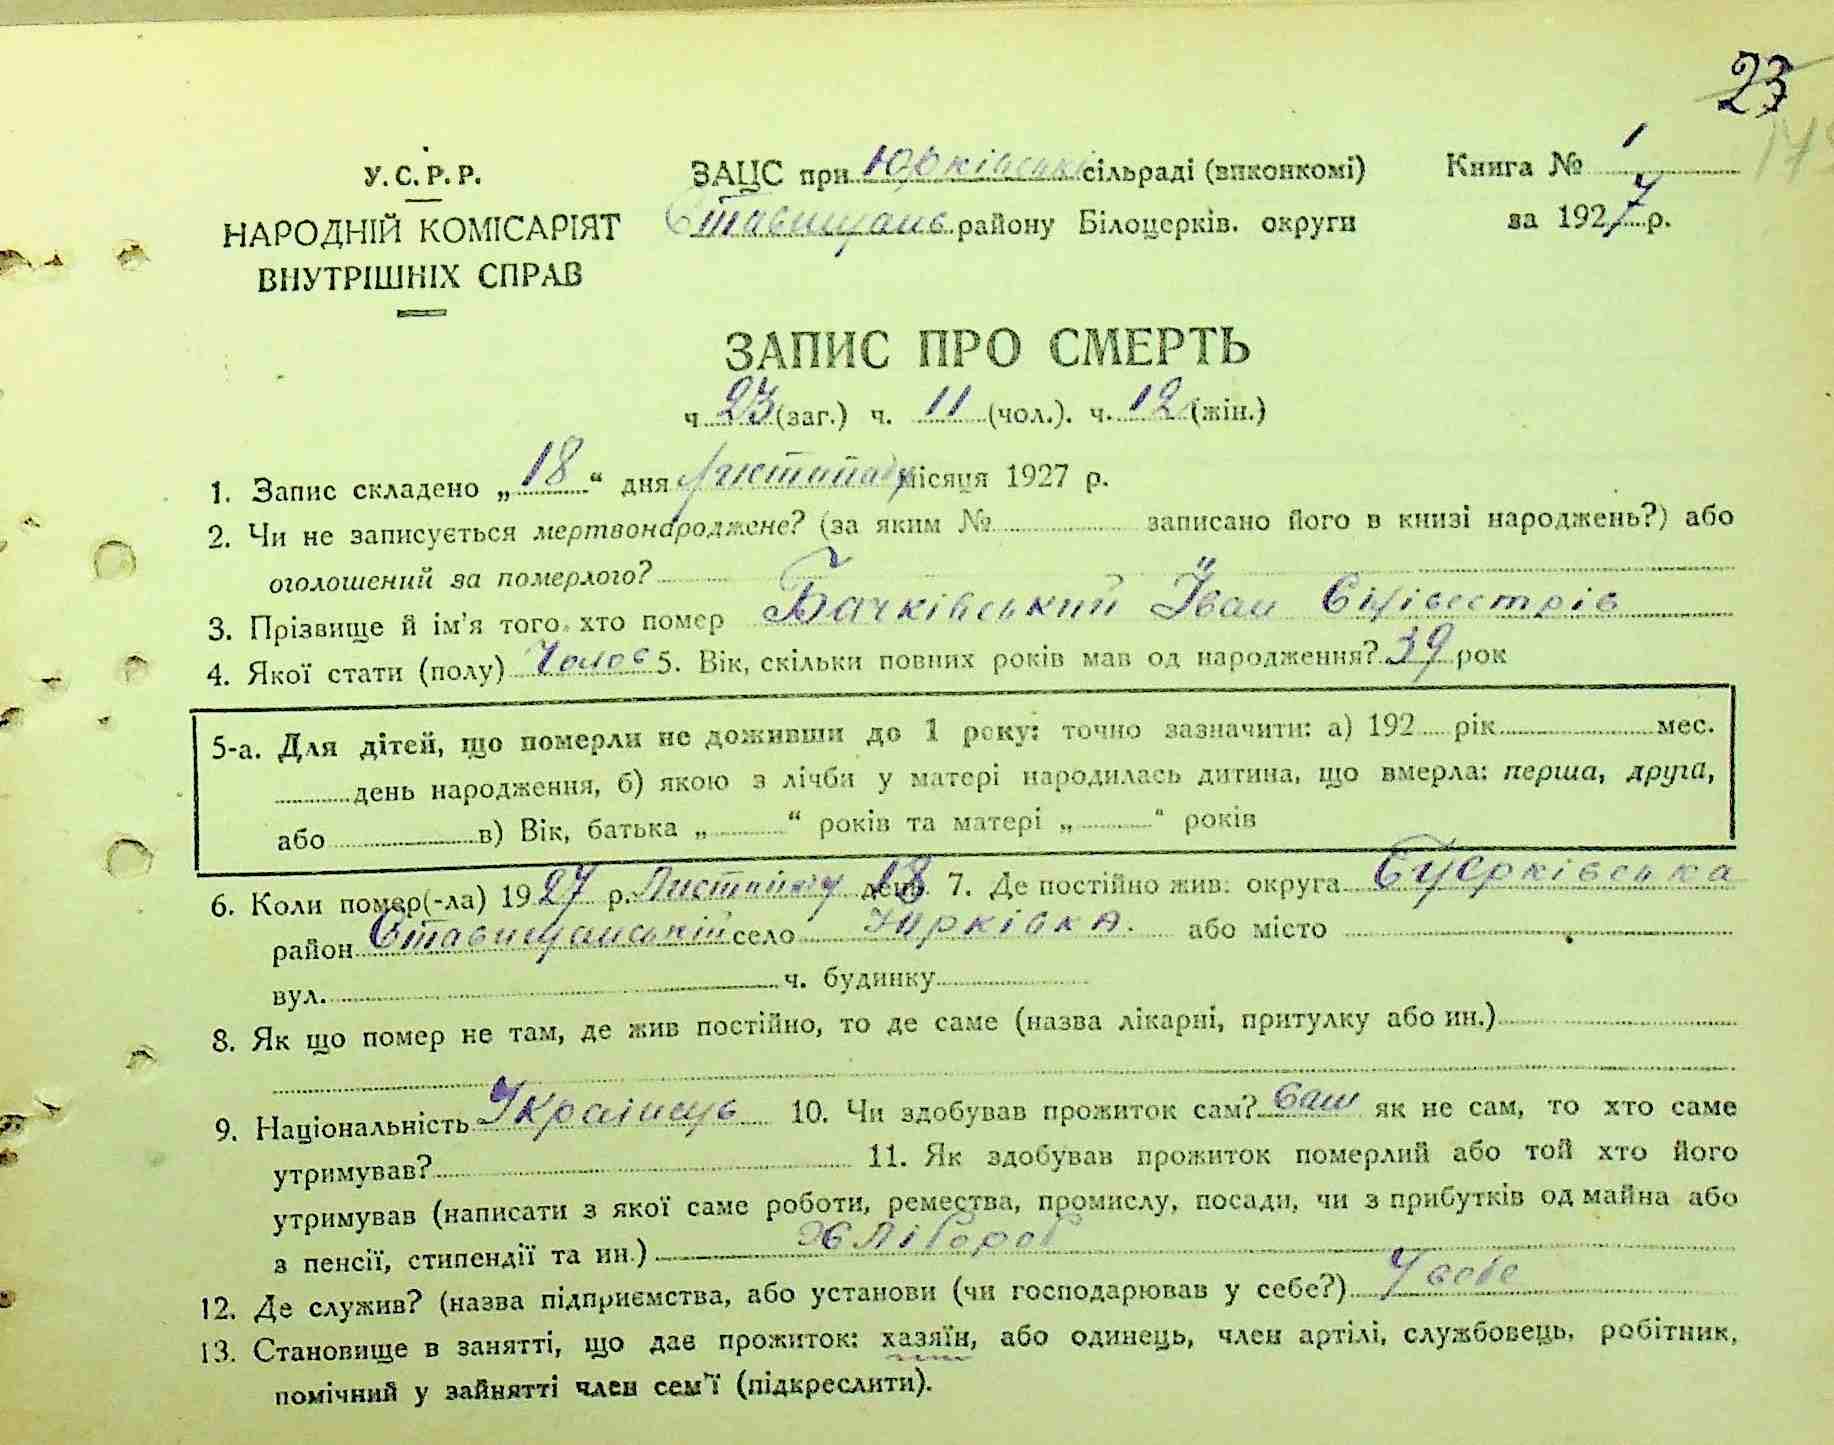 23
У.С.Р.Р.
НАРОДНІЙ КОМІСАРІЯТ
ВНУТРІШНІХ СПРАВ
ЗАЦС при Юрківські сільраді (виконкомі)
Ставищань району Білоцерків. округи
Книга № 1
за 1927 р.
ЗАПИС ПРО СМЕРТЬ
ч 23 (заг.) ч. 11 (чол.). ч. 12 (жін.)
1. Запис складено „ 18 “ дня Листопаду місяця 1927 р.
2. Чи не записується мертвонароджене? (за яким № записано його в книзі народжень?) або
оголошений за померлого?
3. Прізвище й ім'я того, хто помер Бачківський Іван Сілівестрів
4. Якої стати (полу) Чолов 5. Вік, скільки повних років мав од народження? 39 рок
5-а. Для дітей, що померли не доживши до 1 року: точно зазначити: а) 192 рік мес.
день народження, б) якою з лічби у матері народилась дитина, що вмерла: перша, друга,
або в) Вік, батька „ “ років та матері „ “ років
6. Коли помер(-ла) 1927 р. Листопаду 18 день 7. Де постійно жив: округа Бцерківська
район Ставищанській село Юрківка. або місто
вул. ч. будинку
8. Як що помер не там, де жив постійно, то де саме (назва лікарні, притулку або ин.)
9. Національність Українець 10. Чи здобував прожиток сам? Сам як не сам, то хто саме
утримував? 11. Як здобував прожиток померлий або той хто його
утримував (написати з якої саме роботи, ремества, промислу, посади, чи з прибутків од майна або
з пенсії, стипендії та ин.) Хлібороб
12. Де служив? (назва підприємства, або установи (чи господарював у себе?) У себе
13. Становище в занятті, що дає прожиток: хазяїн, або одинець, член артілі, службовець, робітник,
помічний у зайнятті член сем'ї (підкреслити).